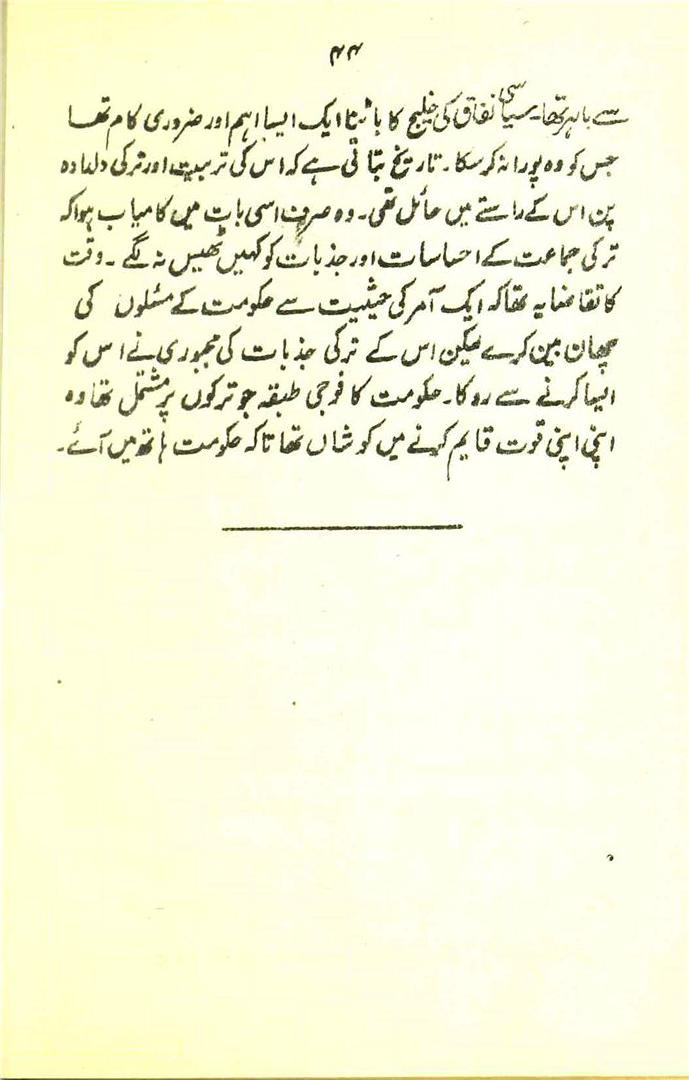 ۴۴
سے باہر تھا۔ سیاسی نفاق کی خلیج کا پاٹنا ایک ایسا اہم اور ضروری کام تھا
جس کو وہ پورا نہ کر سکا۔ تاریخ بتاتی ہے کہ اس کی تربیت اور ترکی دلدادہ
پن اس کے راستے میں حائل تھی۔ وہ صرف اسی بات میں کامیاب ہوا کہ
ترکی جماعت کے احساسات اور جذبات کو کہیں ٹھیس نہ لگے۔ وقت
کا تقاضا یہ تھا کہ ایک آمر کی حیثیت سے حکومت کے مسئلوں کی
چھان بین کرے لیکن اس کے ترکی جذبات کی مجبوری نے اس کو
ایسا کرنے سے روکا۔ حکومت کا فوجی طبقہ جو ترکوں پر مشتمل تھا وہ
اپنی اپنی قوت قایم کرنے میں کوشاں تھا تاکہ حکومت ہاتھ میں آئے۔